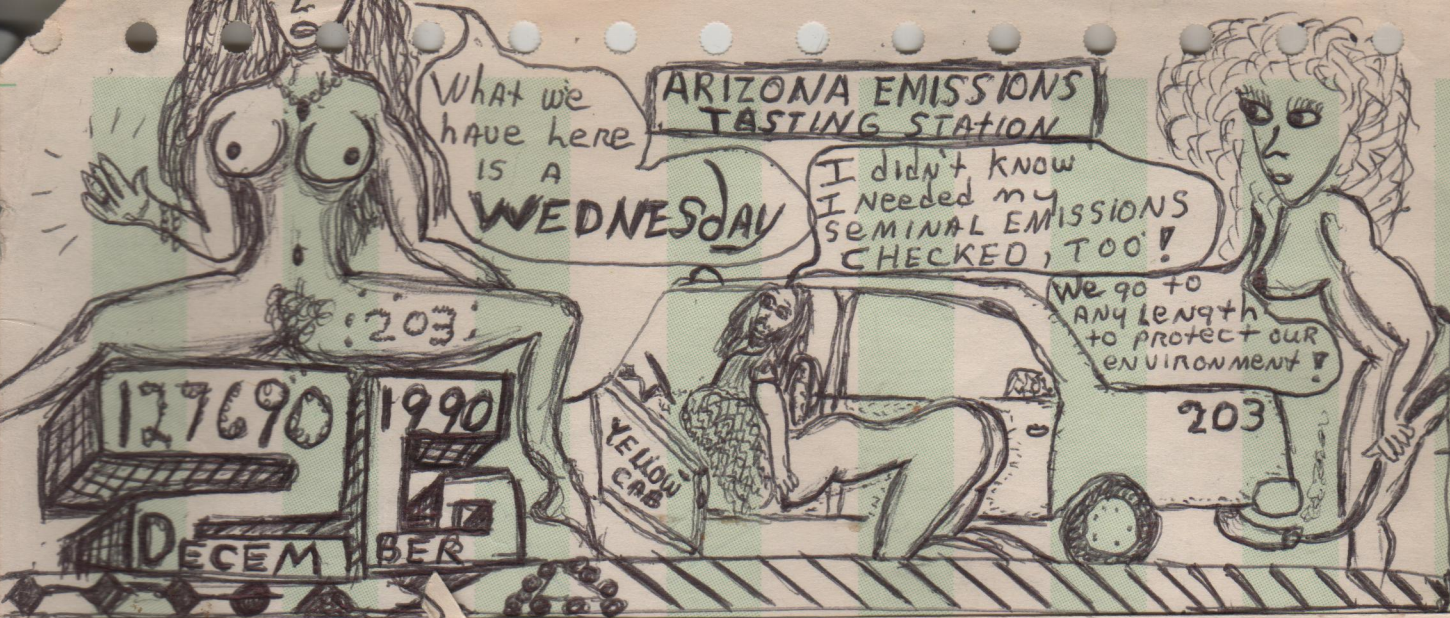 What we
have here
IS A
WEDNESdAY
ARIZONA EMISSIONS
TASTING STATION
I didn't know
I Needed my
SEMINAL EMISSIONS
CHECKED, TOO!
We go to
ANY LENGTH
to protect our
ENVIRONMENT!
:203:
127690
1990
YELLOW
CAB
203
26
DECEMBER